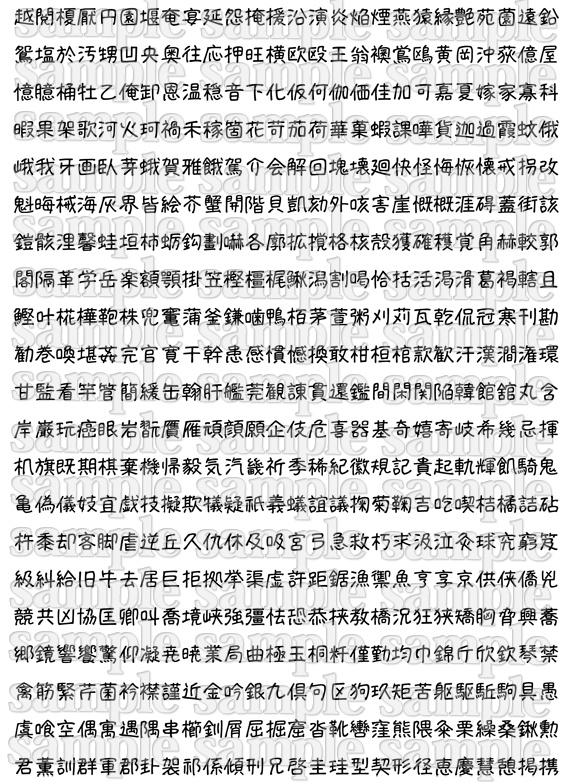 越閲榎厭円園堰奄宴延怨掩援沿演炎焔煙燕猿縁艶苑薗遠鉛
鴛塩於汚甥凹央奥往応押旺横欧殴王翁襖鴬鴎黄岡沖荻億屋
憶臆桶牡乙俺卸恩温穏音下化仮何伽価佳加可嘉夏嫁家寡科
暇果架歌河火珂禍禾稼箇花苛茄荷華菓蝦課嘩貨迦過霞蚊俄
峨我牙画臥芽蛾賀雅餓駕介会解回塊壊廻快怪悔恢懐戒拐改
魁晦械海灰界皆絵芥蟹開階貝凱劾外咳害崖慨概涯碍蓋街該
鎧骸浬馨蛙垣柿蛎鈎劃嚇各廓拡撹格核殻獲確穫覚角赫較郭
閣隔革学岳楽額顎掛笠樫橿梶鰍潟割喝恰括活渇滑葛褐轄且
鰹叶椛樺鞄株兜竃蒲釜鎌噛鴨栢茅萱粥刈苅瓦乾侃冠寒刊勘
勧巻喚堪姦完官寛干幹患感慣憾換敢柑桓棺款歓汗漢澗潅環
甘監看竿管簡緩缶翰肝艦莞観諌貫還鑑間閑関陥韓館舘丸含
岸巌玩癌眼岩翫贋雁頑顔願企伎危喜器基奇嬉寄岐希幾忌揮
机旗既期棋棄機帰毅気汽畿祈季稀紀徽規記貴起軌輝飢騎鬼
亀偽儀妓宜戯技擬欺犠疑祇義蟻誼議掬菊鞠吉吃喫桔橘詰砧
杵黍却客脚虐逆丘久仇休及吸宮弓急救朽求汲泣灸球究窮笈
級糾給旧牛去居巨拒拠挙渠虚許距鋸漁禦魚亨享京供侠僑兇
競共凶協匡卿叫喬境峡強彊怯恐恭挟教橋況狂狭矯胸脅興蕎
郷鏡響饗驚仰凝尭暁業局曲極玉桐粁僅勤均巾錦斤欣欽琴禁
禽筋緊芹菌衿襟謹近金吟銀九倶句区狗玖矩苦躯駆駈駒具愚
虞喰空偶寓遇隅串櫛釧屑屈掘窟沓靴轡窪熊隈粂栗繰桑鍬勲
君薫訓群軍郡卦袈祁係傾刑兄啓圭珪型契形径恵慶慧憩掲携